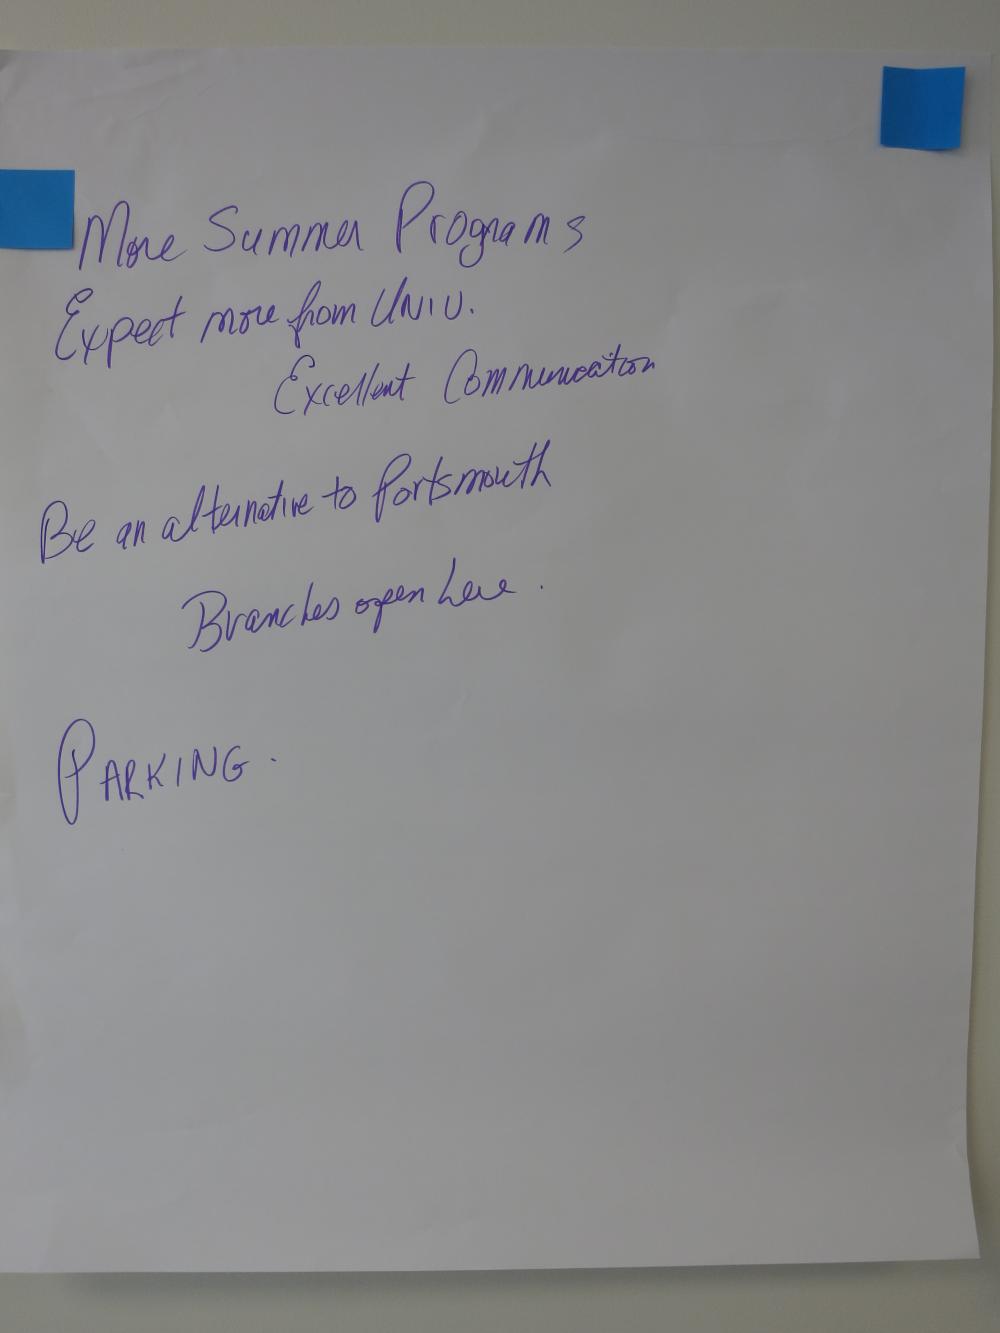 More Summer Programs
Expect more from UNIV.
Excellent Communication
Be an alternative to Portsmouth
Branches open here.
PARKING.